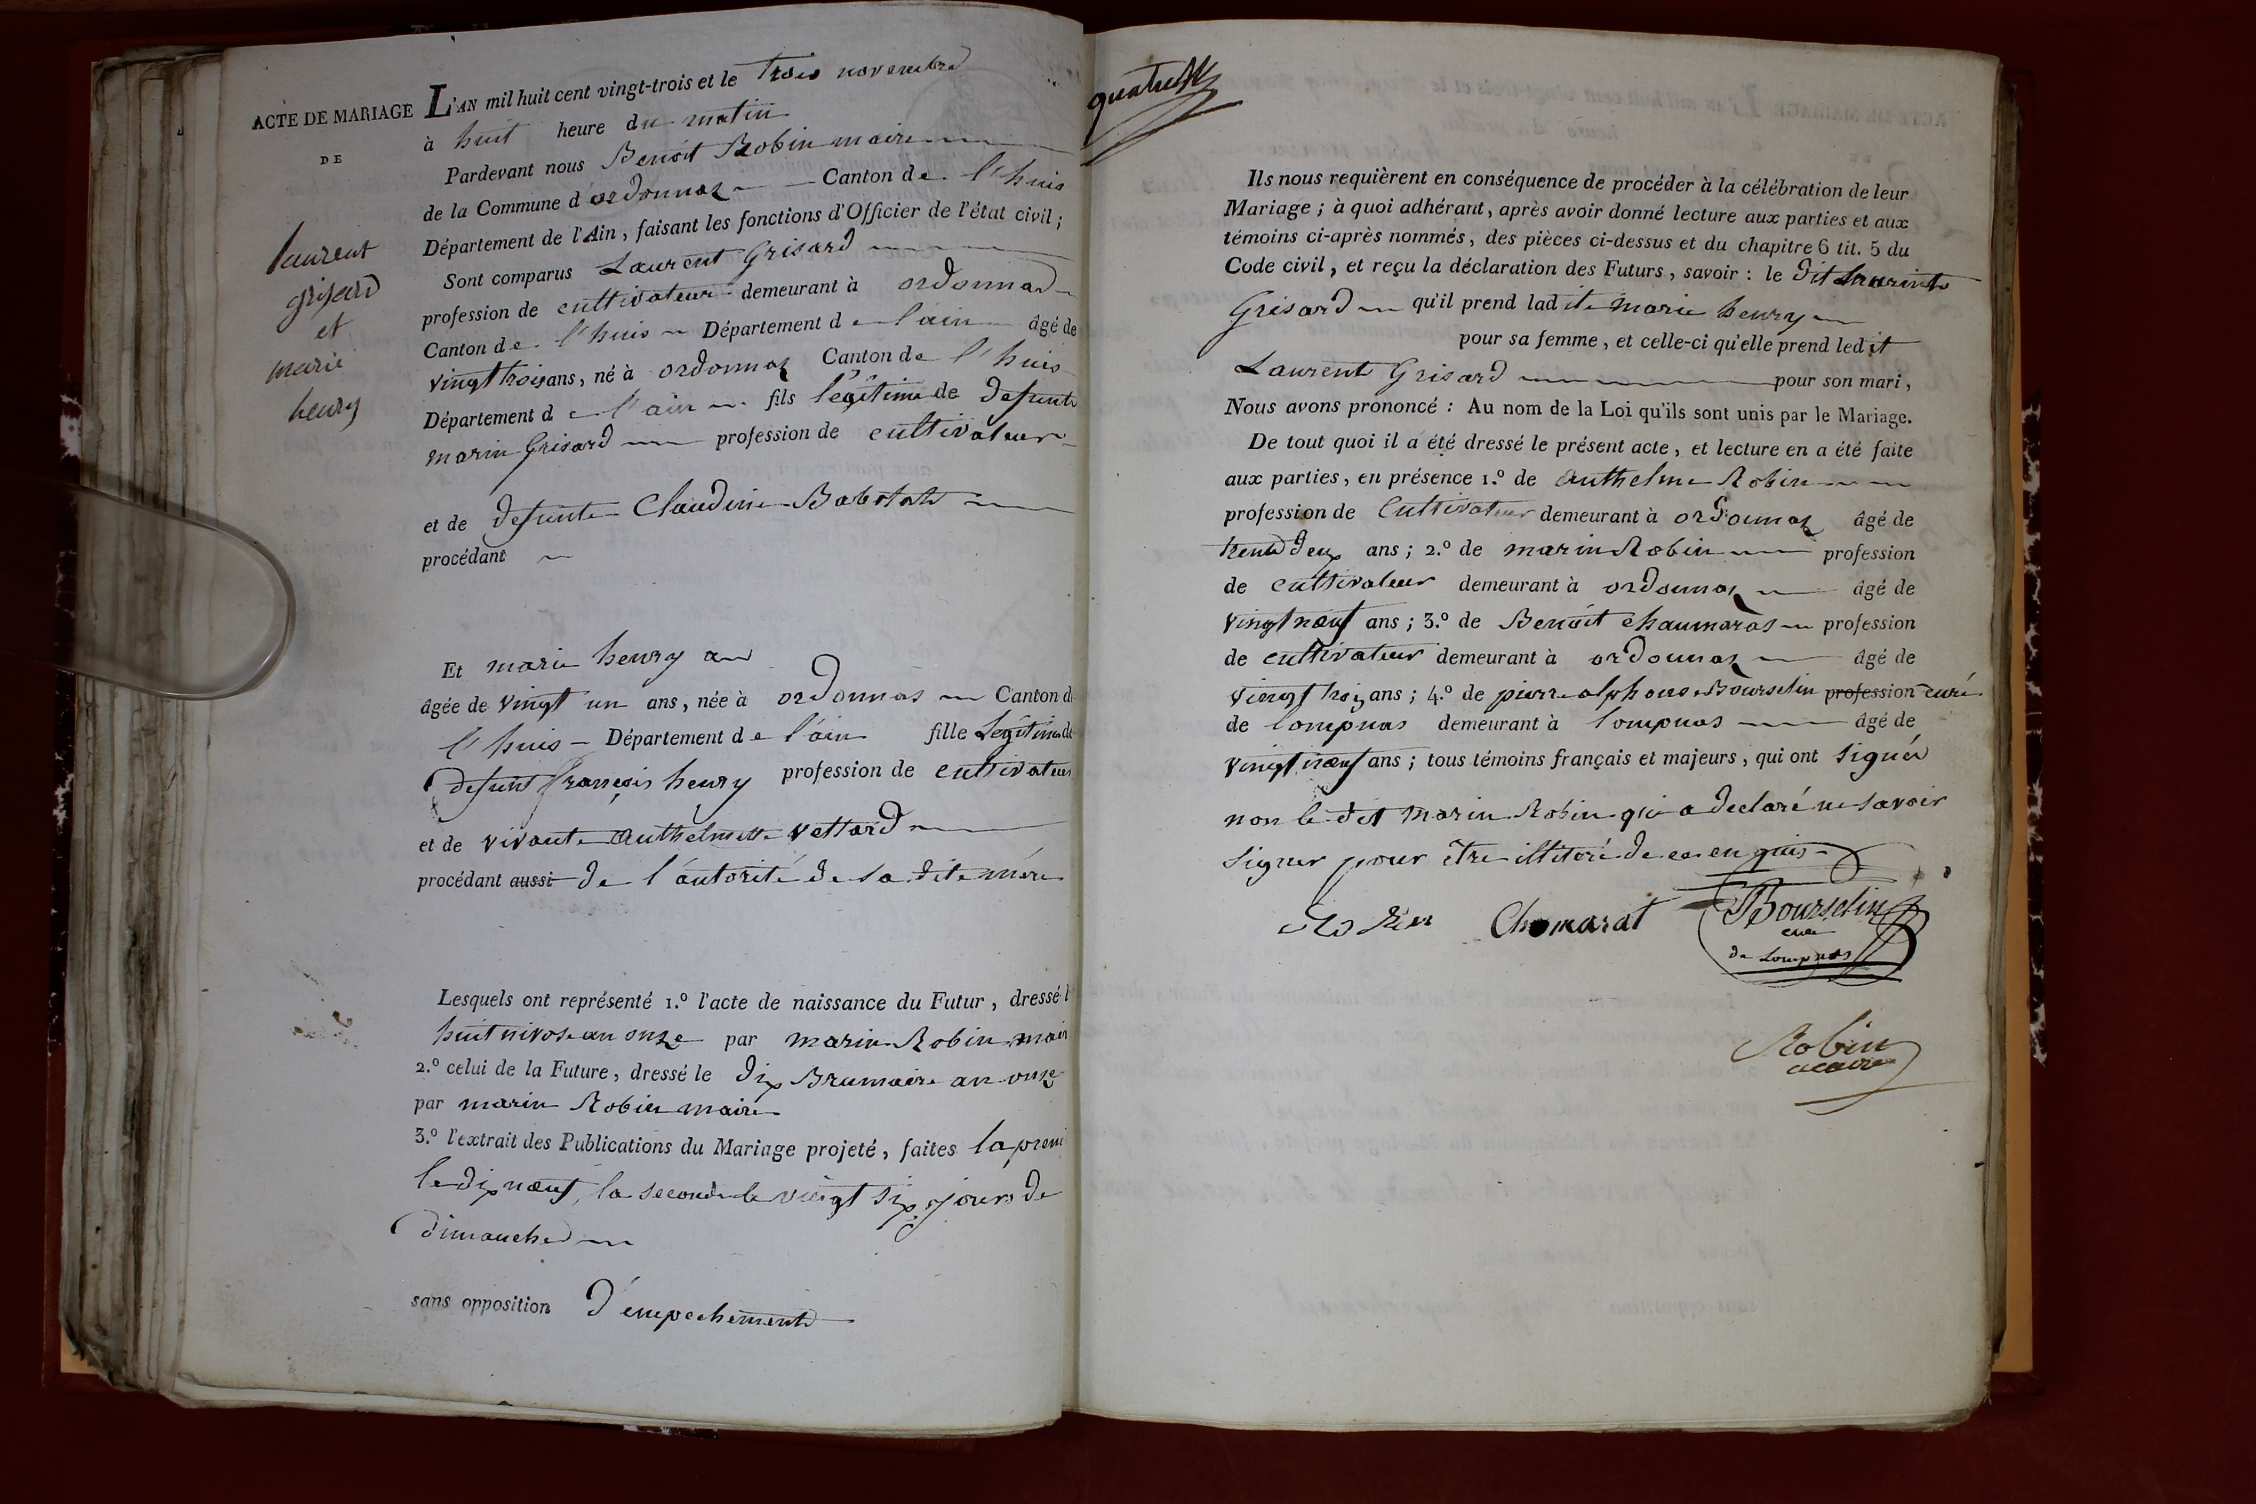 ACTE DE MARIAGE
DE
laurent
grisard
et
marie
henry
L'AN mil huit cent vingt-trois et le trois novembre
à huit heure du matin
Pardevant nous Benoit Robin maire
de la Commune d'ordonnaz Canton de l'huis
Département de l'Ain, faisant les fonctions d'Officier de l'état civil;
Sont comparus Laurent Grisard
profession de cultivateur demeurant à ordonnas
Canton de l'huis Département de l'ain âgé de
vingt trois ans, né à ordonnaz Canton de l'huis
Département de l'ain fils légitime de defunt
marin Grisard profession de cultivateur
et de defunte Claudine
procédant
Et marie henry
âgée de vingt un ans, née à ordonnas Canton d
l'huis Département de l'ain fille Légitime de
defunt françois henry profession de cultivateur
et de vivante Authelmette vettard
procédant aussi de l'autorité de sa dite mére
Lesquels ont représenté 1.º l'acte de naissance du Futur, dressé l
huit nivose an onze par marin Robin mair
2.º celui de la Future, dressé le dix Brumaire an onze
par marin Robin maire
3.º l'extrait des Publications du Mariage projeté, faites la premi
le dix nœuf, la seconde le vingt six jours de
dimanche
sans opposition d'émpechement
quatre
Ils nous requièrent en conséquence de procéder à la célébration de leur
Mariage; à quoi adhérant, après avoir donné lecture aux parties et aux
témoins ci-après nommés, des pièces ci-dessus et du chapitre 6 tit. 5 du
Code civil, et reçu la déclaration des Futurs, savoir: le dit
Grisard qu'il prend ladite marie henry
pour sa femme, et celle-ci qu'elle prend ledit
Laurent Grisard pour son mari,
Nous avons prononcé: Au nom de la Loi qu'ils sont unis par le Mariage.
De tout quoi il a été dressé le présent acte, et lecture en a été faite
aux parties, en présence 1.º de Authelme Robin
profession de Cultivateur demeurant à ordonnaz âgé de
trente deux ans; 2.º de marin Robin profession
de cultivateur demeurant à ordonnaz âgé de
vingt nœuf ans; 3.º de Benoit chaumaras profession
de cultivateur demeurant à ordonnaz âgé de
vingt trois ans; 4.º de pierre alphonse Bourselin profession curé
de lompnas demeurant à lompnas âgé de
vingt nœuf ans; tous témoins français et majeurs, qui ont signés
non le dit marin Robin qui a declaré ne savoir
signer pour être illitoré de ce enquis
Robin Chomarat Bourselin
curé
de Lompnas
Robin
maire